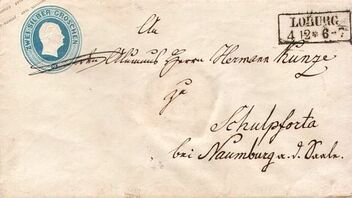 ZWEI SILBER GROSCHEN
LOBURG
4 12 * 6-7
An
Alumnus Herrn Hermann Kunze
zu
Schulpforta
bei Naumburg a. d. Saale.